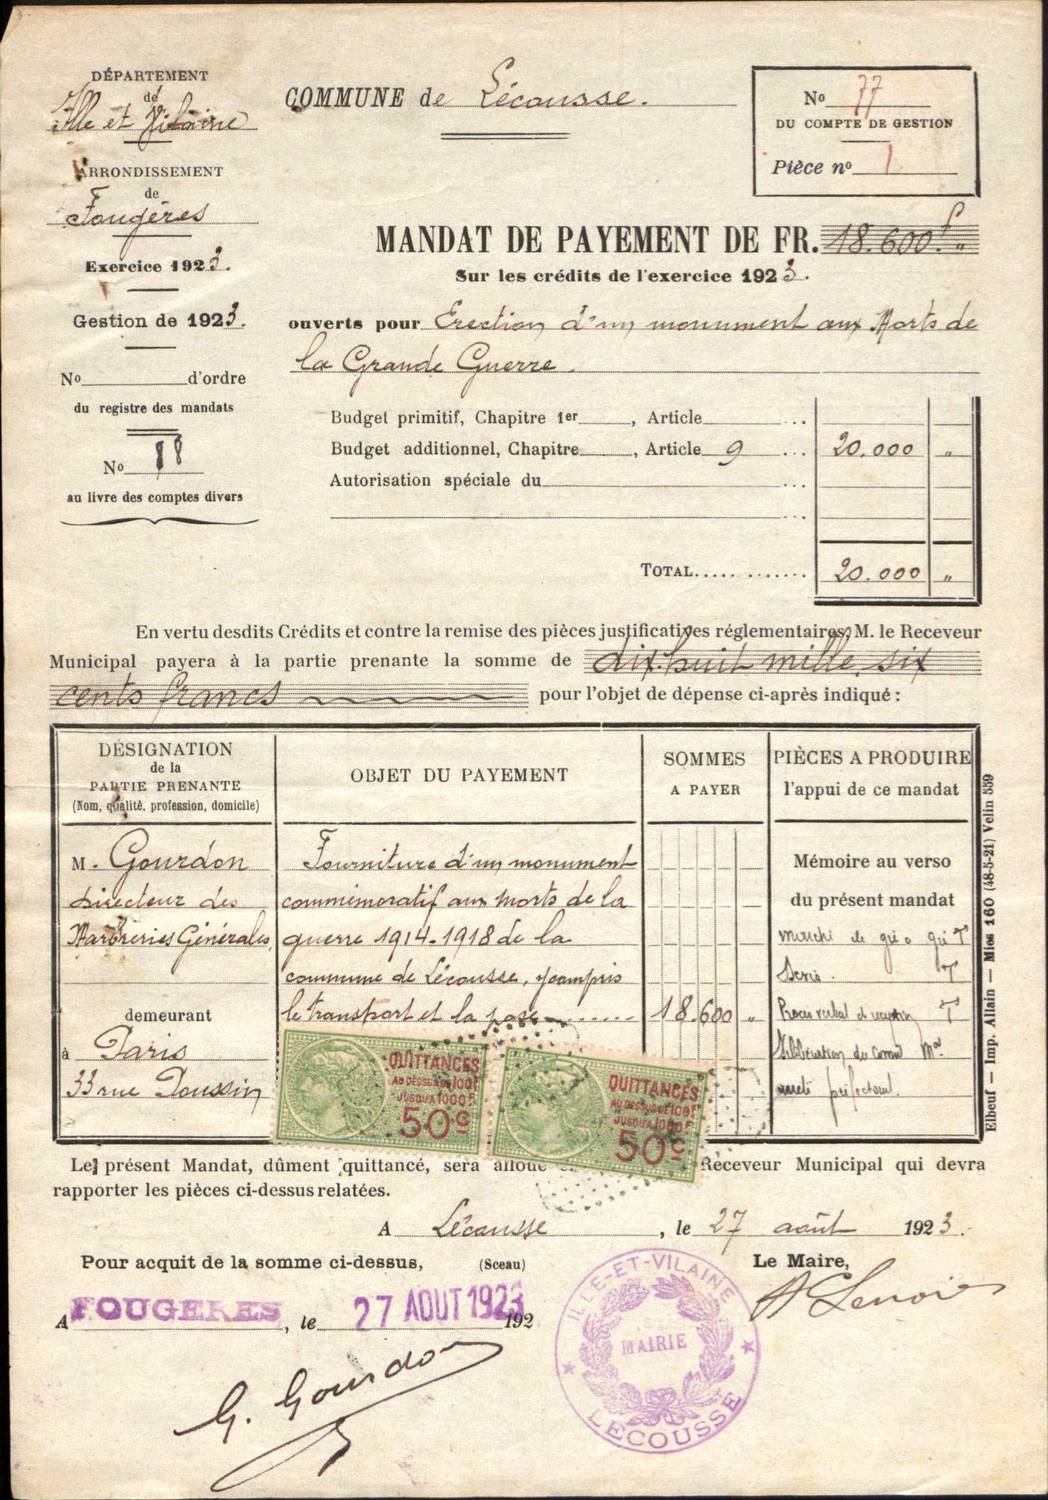 DÉPARTEMENT
de
Ille et Vilaine
ARRONDISSEMENT
de
Fougères
Exercice 1923.
Gestion de 1923.
No d'ordre
du registre des mandats
No
au livre des comptes divers
COMMUNE de Lécousse.
No 77
DU COMPTE DE GESTION
Pièce no 1
MANDAT DE PAYEMENT DE FR. 18.600f. "
Sur les crédits de l'exercice 1923.
ouverts pour Erection d'un monument aux Morts de
la Grande Guerre.
Budget primitif, Chapitre 1er , Article ...
Budget additionnel, Chapitre , Article 9 ... 20.000 "
Autorisation spéciale du
...
TOTAL............. 20.000 "
En vertu desdits Crédits et contre la remise des pièces justificatives réglementaires, M. le Receveur
Municipal payera à la partie prenante la somme de dix huit mille six
cents francs pour l'objet de dépense ci-après indiqué :
DÉSIGNATION
de la
PARTIE PRENANTE
(Nom, qualité, profession, domicile)
M. Gourdon
Directeur des
Marbreries Générales,
demeurant
à Paris
33 rue Poussin
OBJET DU PAYEMENT
Fourniture d'un monument
commémoratif aux morts de la
guerre 1914-1918 de la
commune de Lécousse, y compris
le transport et la pose
SOMMES
A PAYER
18.600 "
PIÈCES A PRODUIRE
l'appui de ce mandat
Mémoire au verso
du présent mandat
marché de gré à gré T
Devis. T
Procès verbal de réception T
Délibération du Conseil Mal
arrêté préfectoral.
Elbeuf — Imp. Allain — Mies 160 (48-5-21) Velin 559
QUITTANCES
AU DESSUS DE 100F
JUSQU'A 1000F
50c
QUITTANCES
AU DESSUS DE 100F
JUSQU'A 1000F
50c
Le présent Mandat, dûment quittancé, sera alloué Receveur Municipal qui devra
rapporter les pièces ci-dessus relatées.
A Lécousse , le 27 août 1923.
Pour acquit de la somme ci-dessus, (Sceau) Le Maire,
A FOUGERES, le 27 AOUT 1923 192
G. Gourdon
ILLE-ET-VILAINE
MAIRIE
LECOUSSE
A Lenoir